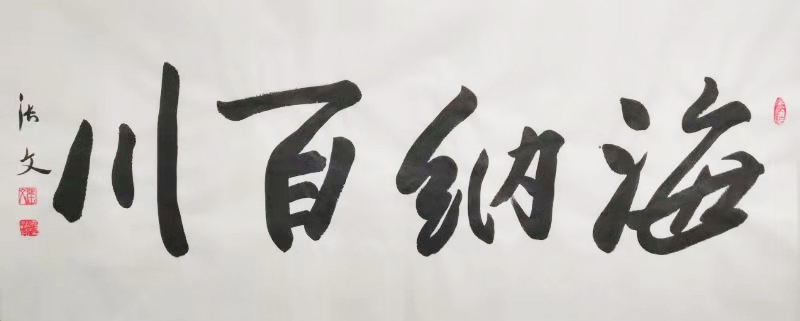 海纳百川
张文